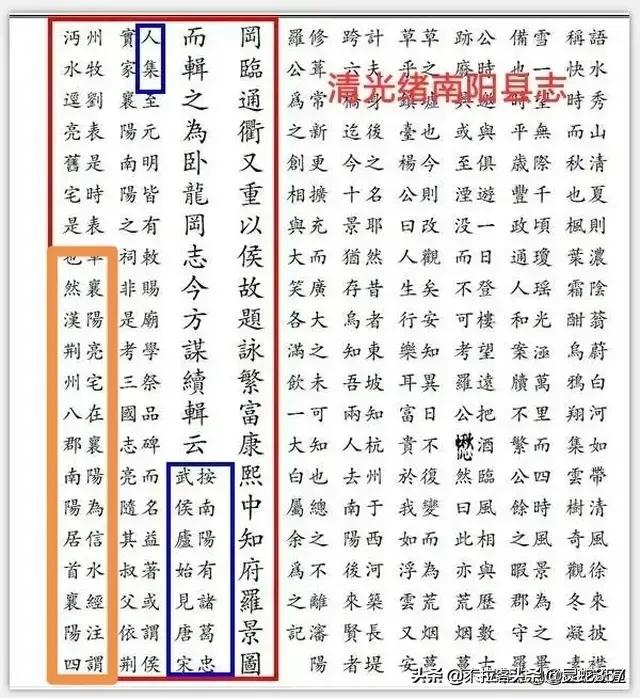 語水秀山清夏則濃陰蓊蔚白河如帶清風徐來披襟
稱快時而秋也楓葉霜酣烏鴉翔集雲樹奇觀冬
雪一望無際千頃瓊瑤光涵萬里而四時之風景為之畢
備也時平歲豐政通人和案牘不繁公餘之暇郡守羅
公時與俱遊一日登樓望遠把酒臨風相與歷數古
跡廢興或至湮沒而不可考羅公愀然曰此亦與萬
草之墟也今則改觀矣安知異日不復變而為荒煙
草一臺楊公曰人生行樂耳富貴於我如浮雲荒又安
計夫身後之名耶然昔者東坡知杭州于西河築長堤
跨六橋迄今十景猶存烏知兩人去南陽後來賢者
修葺常新更擴充而廣大之未可知也總之不離瀋陽
羅公為之創相與大笑各滿飲一大白屬余為之記
清光绪南阳县志
岡臨通衢又重以侯故題詠繁富康熙中知府羅景圖
而輯之為卧龍岡志今方謀續輯云
按南陽有諸葛忠
武侯廬始見唐宋
人集至元明皆有敕賜廟學祭品碑而名益著或謂侯
實家襄陽南陽之祠非是考三國志亮隨其叔父依荆
州牧劉表是時表 襄陽亮宅在襄陽為信水經注謂
沔水逕亮舊宅是也然漢荆州八郡南陽居首襄陽四